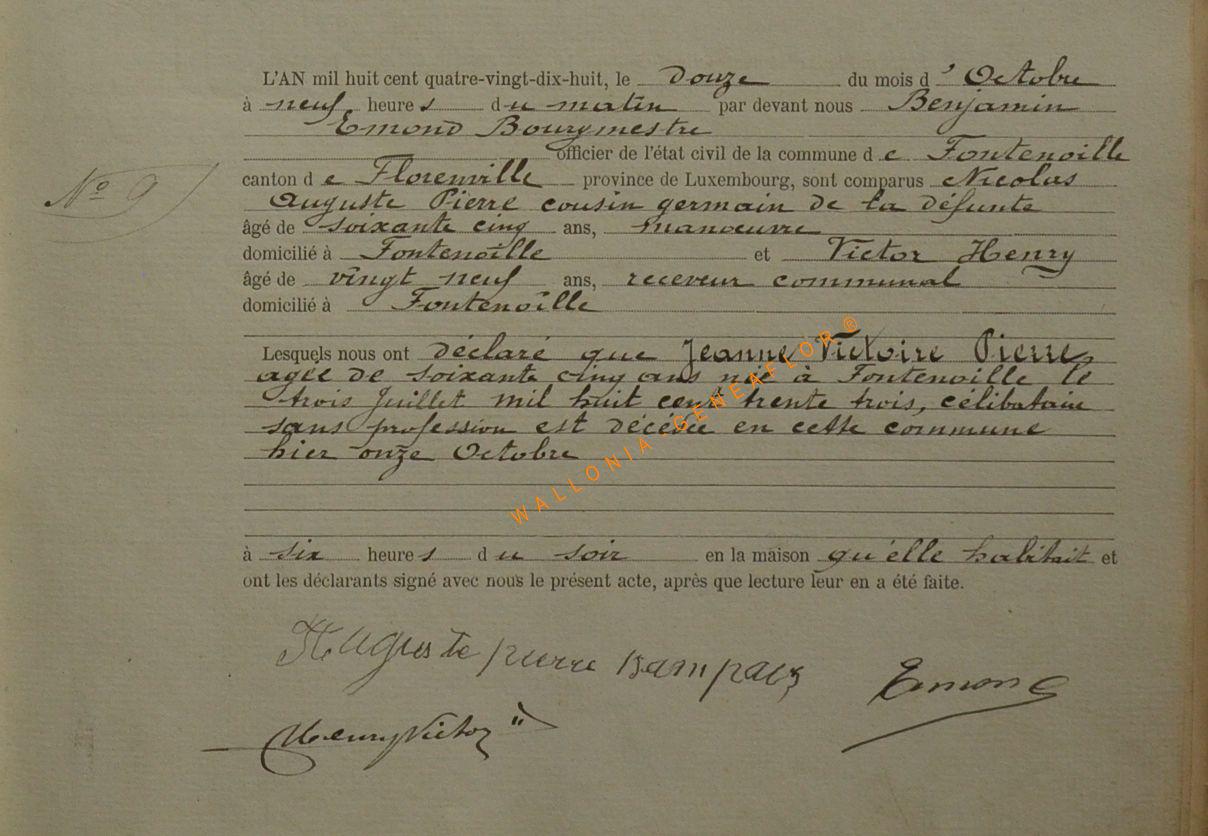 L'AN mil huit cent quatre-vingt-dix-huit, le douze du mois d'Octobre
à neuf heures du matin par devant nous Benjamin
Emond Bourgmestre
officier de l'état civil de la commune de Fontenoille
N° 9
canton de Florenville province de Luxembourg, sont comparus Nicolas
Auguste Pierre cousin germain de la défunte
âgé de soixante cinq ans, manoeuvre
domicilié à Fontenoille et Victor Henry
âgé de vingt neuf ans, receveur communal
domicilié à Fontenoille
Lesquels nous ont déclaré que Jeanne Victoire Pierre,
agée de soixante cinq ans née à Fontenoille le
trois Juillet mil huit cent trente trois, célibataire
sans profession est décédée en cette commune
hier onze Octobre
WALLONIA-GENEAFLOR®
à six heures du soir en la maison qu'elle habitait et
ont les déclarants signé avec nous le présent acte, après que lecture leur en a été faite.
pierre Emond
Henry Victor